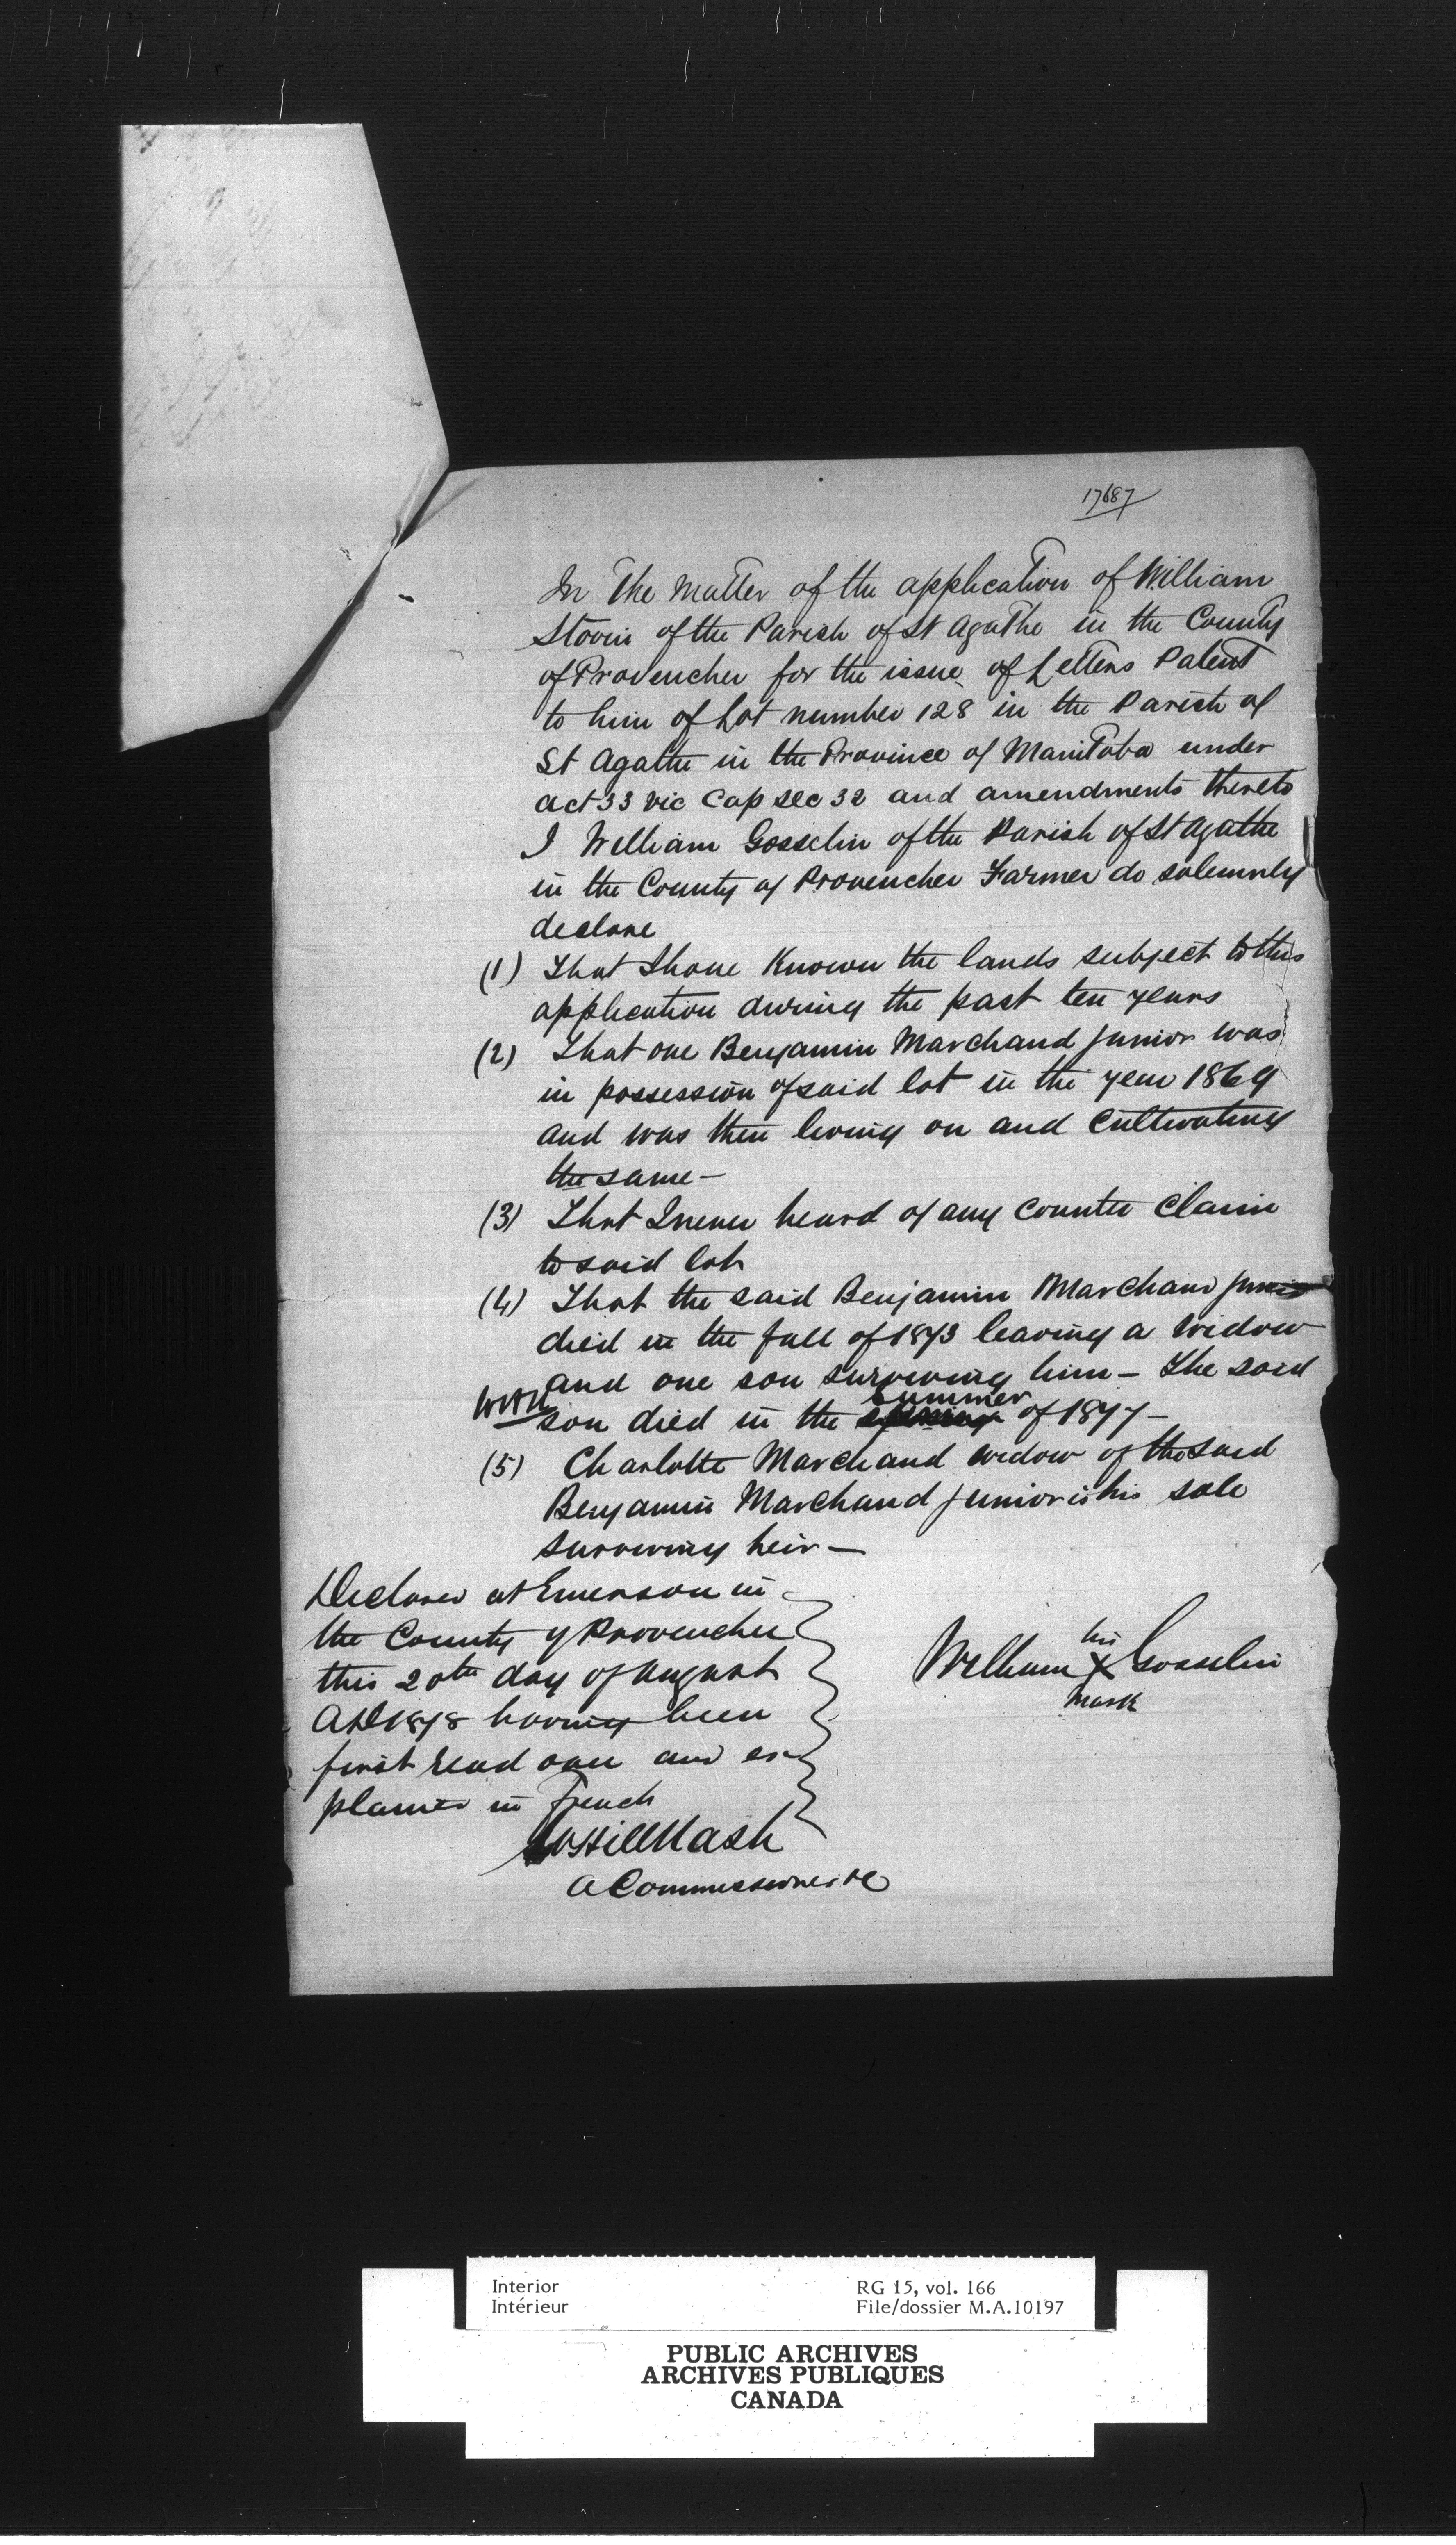 17687
In the matter of the application of William
Stovin of the Parish of St Agathe in the County
of Provencher for the issue of Letters Patent
to him of Lot number 128 in the Parish of
St Agathe in the Province of Manitoba under
act 33 vic Cap sec 32 and amendments thereto
I William Gosselin of the Parish of St Agathe
in the County of Provencher Farmer do solemnly
declare
(1) That I have Known the lands subject to this
application during the past ten years
(2) That one Benjamin Marchand Junior was
in possession of said lot in the year 1869
and was then living on and Cultivating
the same—
(3) That I never heard of any Counter Claim
to said lot
(4) That the said Benjamin Marchand Junior
died in the fall of 1873 leaving a widow
and one son surviving him— The said
son died in the summer of 1877—
(5) Charlotte Marchand widow of the said
Benjamin Marchand Junior is his sole
surviving heir—
Declared at Emerson in
the County of Provencher
this 20th day of August
AD 1878 having been
first read over and ex
plained in French
William his X mark Gosselin
Nash
A Commissioner &c
Interior
Intérieur
RG 15, vol. 166
File/dossier M.A.10197
PUBLIC ARCHIVES
ARCHIVES PUBLIQUES
CANADA